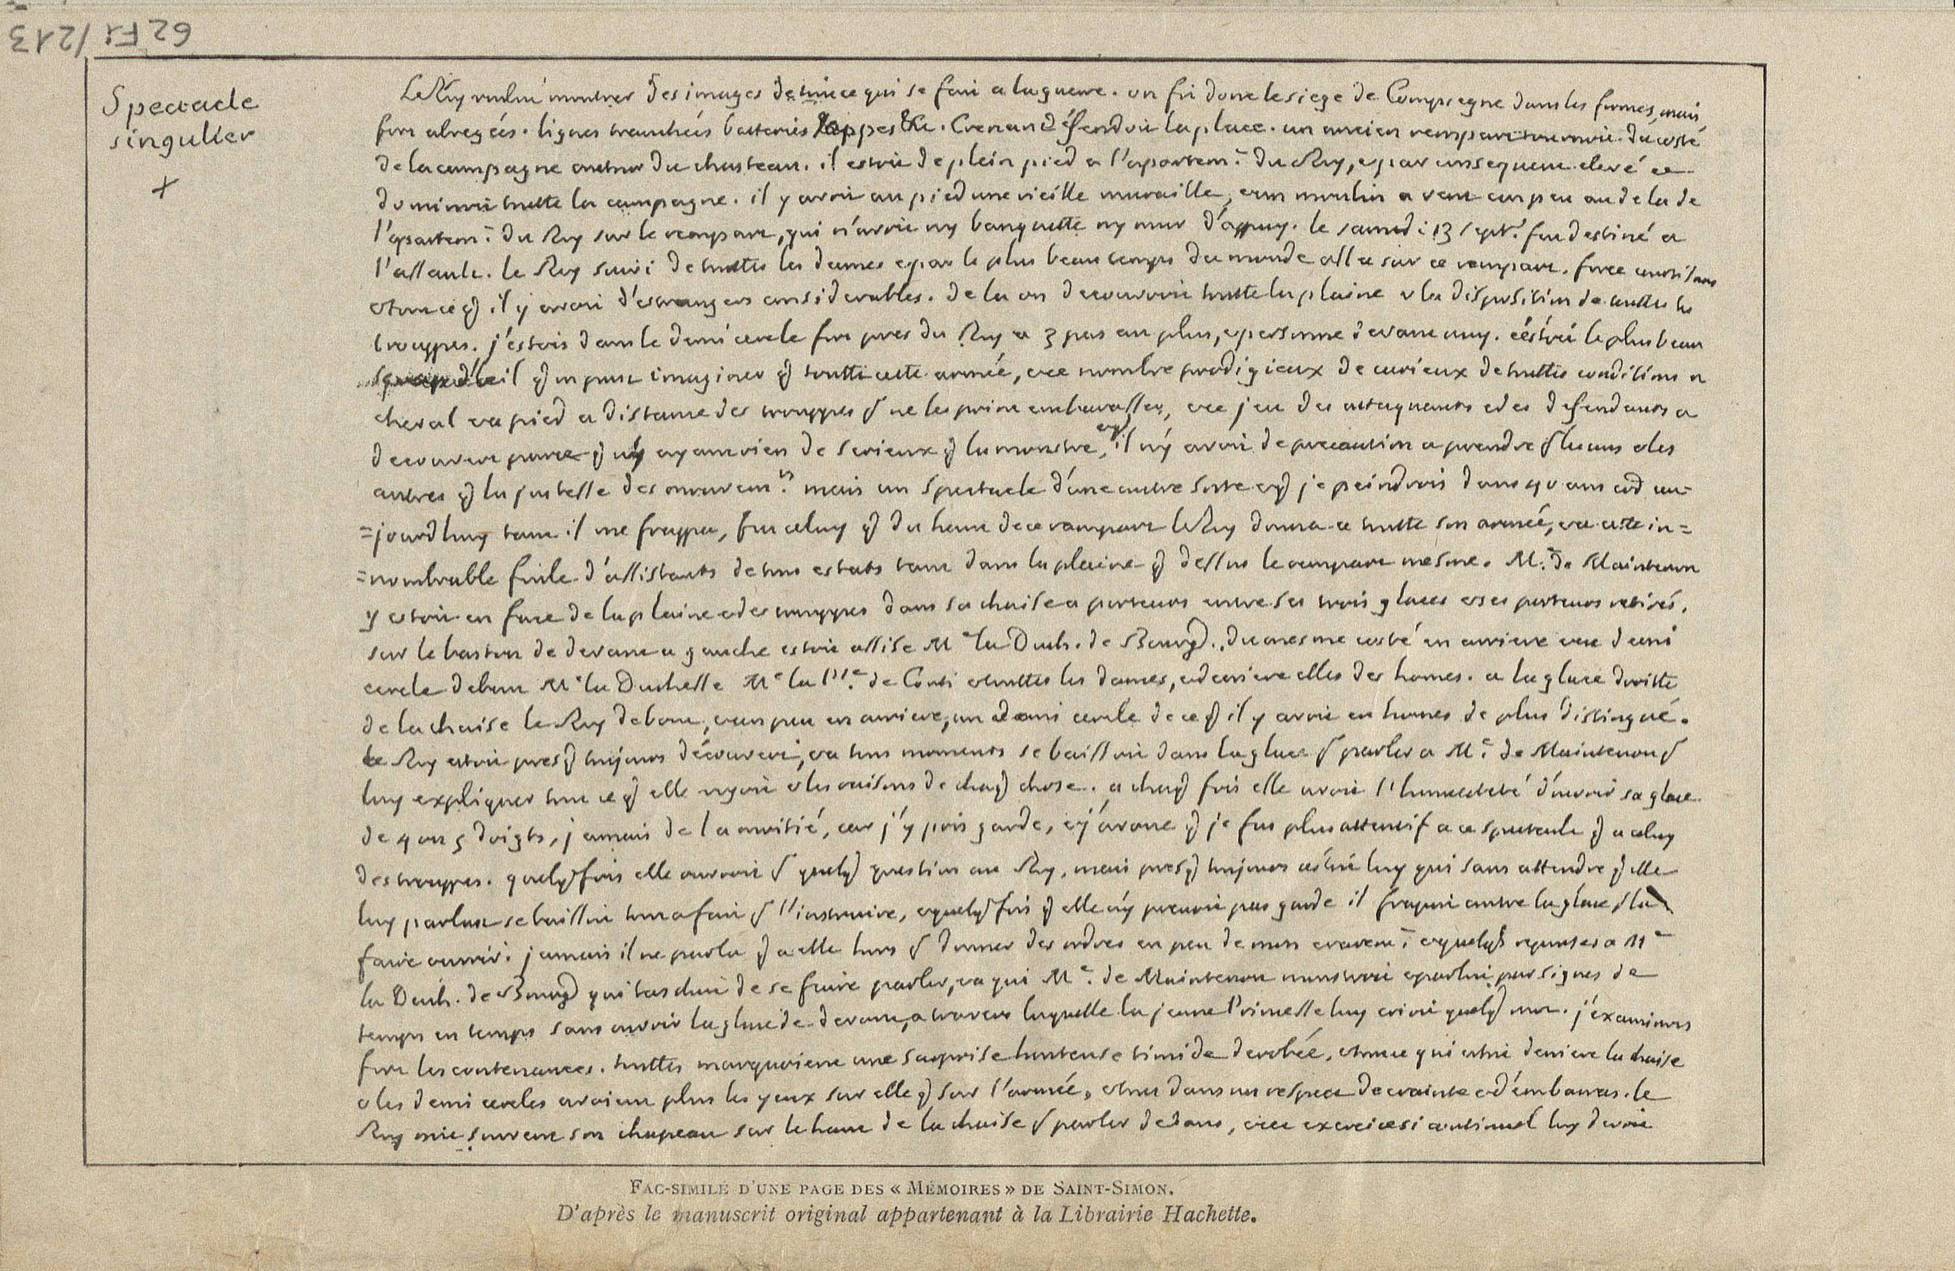 62 F1 / 213
Spectacle
singulier
Le Roy voulut montrer des images de tout ce qui se fait a la guerre. on fit donc le siege de Compiegne dans les formes, mais
fort abregées. lignes tranchées batteries sappes &c. Crenan deffendoit la place. un ancien rempart tournoit du costé
de la campagne autour du chasteau. il estoit de plein pied a l'apartemt du Roy, et par consequent elevé et
dominoit toutte la campagne. il y avoit au pied une vieille muraille, et un moulin a vent un peu au dela de
l'apartemt du Roy sur le rempart, qui n'avoit ny banquette ny mur d'appuy. le samedi 13 septr. fut destiné a
l'assault. le Roy suivi de touttes les dames et par le plus beau temps du monde alla sur ce rempart. force courtisans
et tout ce q il y avoit d'estrangers considerables. de la on decouvroit toutte la plaine et la disposition de touttes les
trouppes. j'estois dans le demi cercle fort pres du Roy a 3 pas au plus, et personne devant moy. c'estoit le plus beau
coup d'œil q on put imaginer q toutte cette armée, et ce nombre prodigieux de curieux de touttes conditions a
cheval et a pied a distance des trouppes p ne les point embarasser, et ce jeu des attaquants et des defendants a
decouvert parce q n'y ayant rien de serieux q la monstre, et q il n'y avoit de precaution a prendre p les uns et les
autres q la justesse des mouvemts. mais un spectacle d'une autre sorte et q je peindrois dans 40 ans come au=
=jourdhuy tant il me frappa, fut celuy q du haut de ce rampart le Roy donna a toutte son armée, et a cette in=
=nombrable foule d'assistants de tous estats tant dans la plaine q dessus le rempart mesme. Me de Maintenon
y estoit en face de la plaine et des trouppes dans sa chaise a porteurs entre ses trois glaces et ses porteurs retirés.
sur le baston de devant a gauche estoit assise Me la Duch. de Bourg., du mesme costé en arriere et en demi
cercle debout Me la Duchesse Me la Pse de Conti et touttes les dames, et derriere elles des homes. a la glace droitte
de la chaise le Roy debout, et un peu en arriere, un demi cercle de ce q il y avoit en homes de plus distingué.
le Roy estoit presq toujours découvert, et a tous moments se baissoit dans la glace p parler a Me de Maintenon p
luy expliquer tout ce q elle voyoit et les raisons de chaq chose. a chaq fois elle avoit l'honnesteté d'ouvrir sa glace
de 4 ou 5 doigts, jamais de la moitié, car j'y pris garde, et j'avoue q je fus plus attentif a ce spectacle q a celuy
des trouppes. quelq fois elle ouvroit p quelq question au Roy, mais presq toujours c'estoit luy qui sans attendre q elle
luy parlast se baissoit tout a fait p l'instruire, et quelq fois q elle n'y prenoit pas garde il frapoit contre la glace p la
faire ouvrir. jamais il ne parla q a elle hors p donner des ordres en peu de mots et raremt et quelq reponses a Me
la Duch. de Bourg qui taschoit de se faire parler, et a qui Me de Maintenon monstroit et parloit par signes de
temps en temps sans ouvrir la glace de devant, a travers laquelle la jeune Princesse luy crioit quelq mot. j'examinois
fort les contenances. touttes marquoient une surprise honteuse timide derobée, et tout ce qui estoit derriere la chaise
et les demi cercles avoient plus les yeux sur elle q sur l'armée, et tout dans un respect de crainte et d'embarras. le
Roy mit souvent son chapeau sur le haut de la chaise p parler dedans, et cet exercice si continuel luy devoit
FAC-SIMILE D'UNE PAGE DES « MÉMOIRES » DE SAINT-SIMON.
D'après le manuscrit original appartenant à la Librairie Hachette.